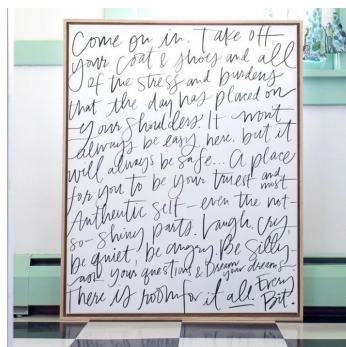 Come on in. Take off
your coat & shoes and all
of the stress and burdens
that the day has placed on
your shoulders. It won't
always be easy here, but it
will always be safe... A place
for you to be your truest and most
Authentic self - even the not-
so-shiny parts. Laugh, cry,
be quiet, be angry. Be silly -
ask your questions & Dream your dreams -
There is room for it all. Every
Bit.